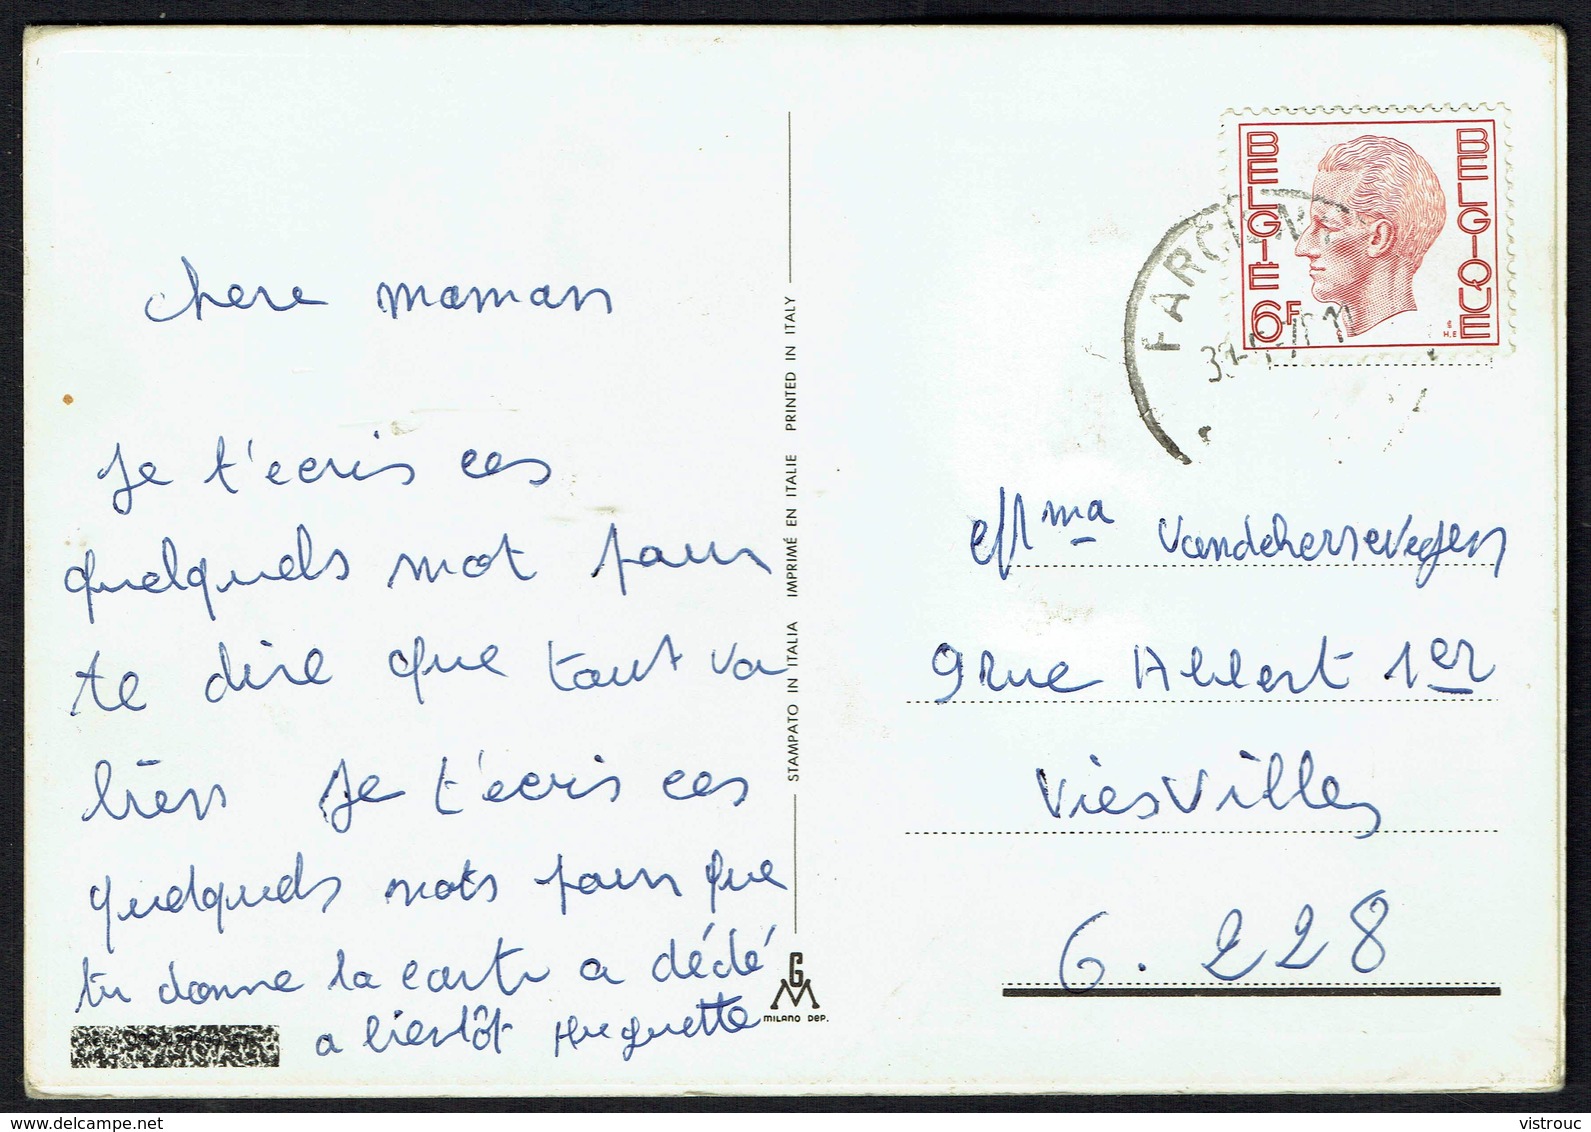 chere maman
Je t'ecris ces
quelquels mot pour
te dire que tout va
bien Je t'ecris ces
quelquels mots pour que
tu donne la carte a dédé
a bientôt Huguette
STAMPATO IN ITALIA IMPRIMÉ EN ITALIE PRINTED IN ITALY
GM
MILANO DEP.
BELGIE 6F
BELGIQUE
H.E
FARCIENN
ma Vandehersevegen
9 rue Albert 1er
ViesVilles
6.228
vistrouc